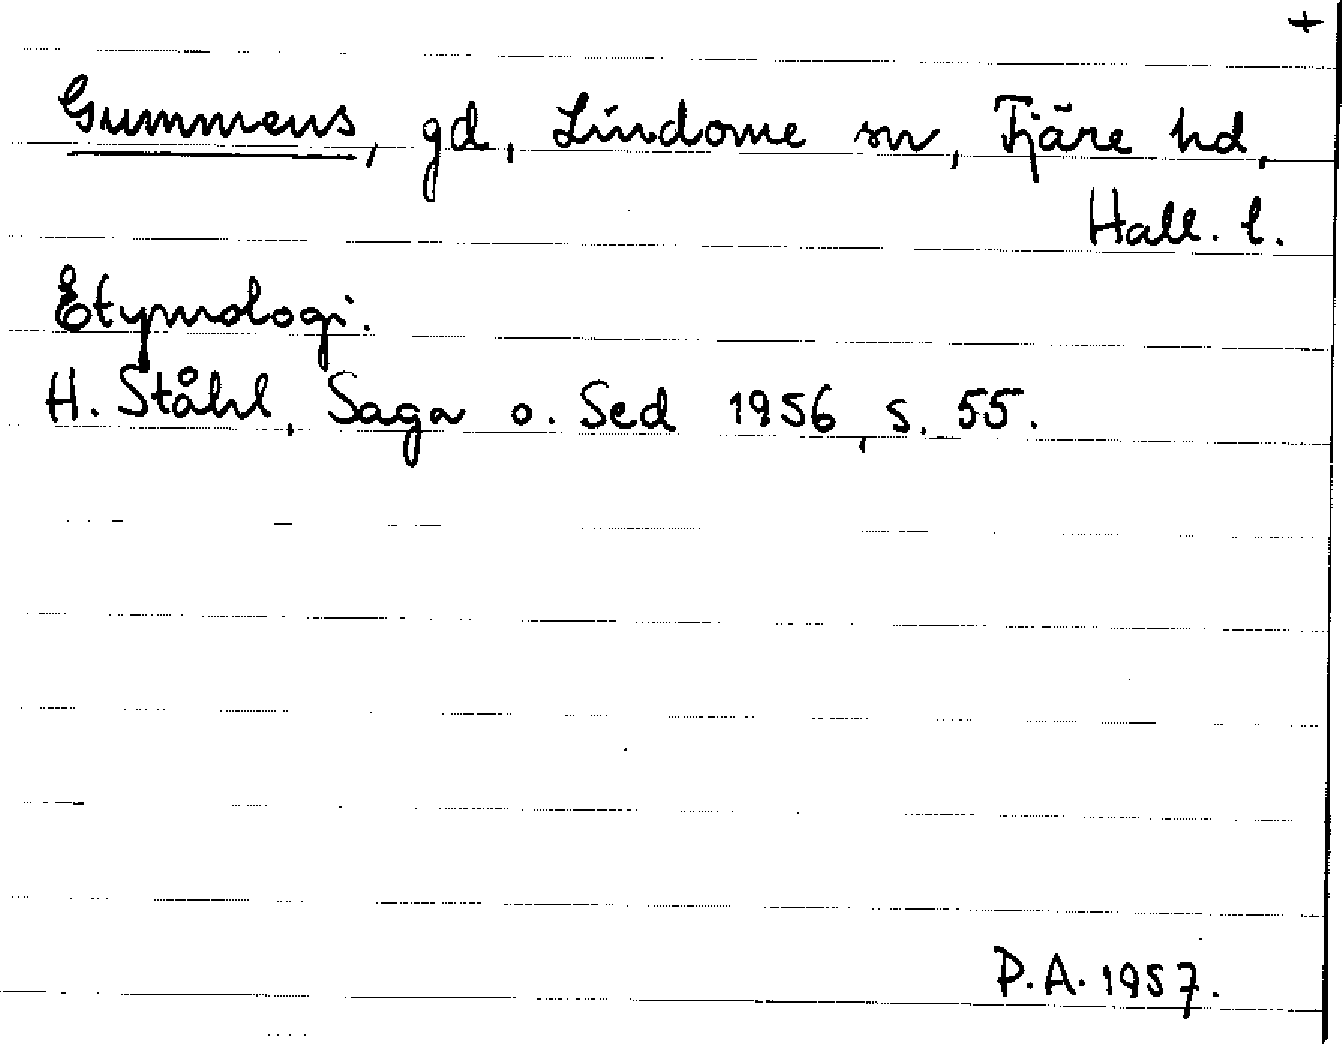 +
Gummens, gd, Lindome sn, Fjäre hd,
Hall. l.
Etymologi.
H. Ståhl, Saga o. Sed 1956, s. 55.
P.A. 1957.